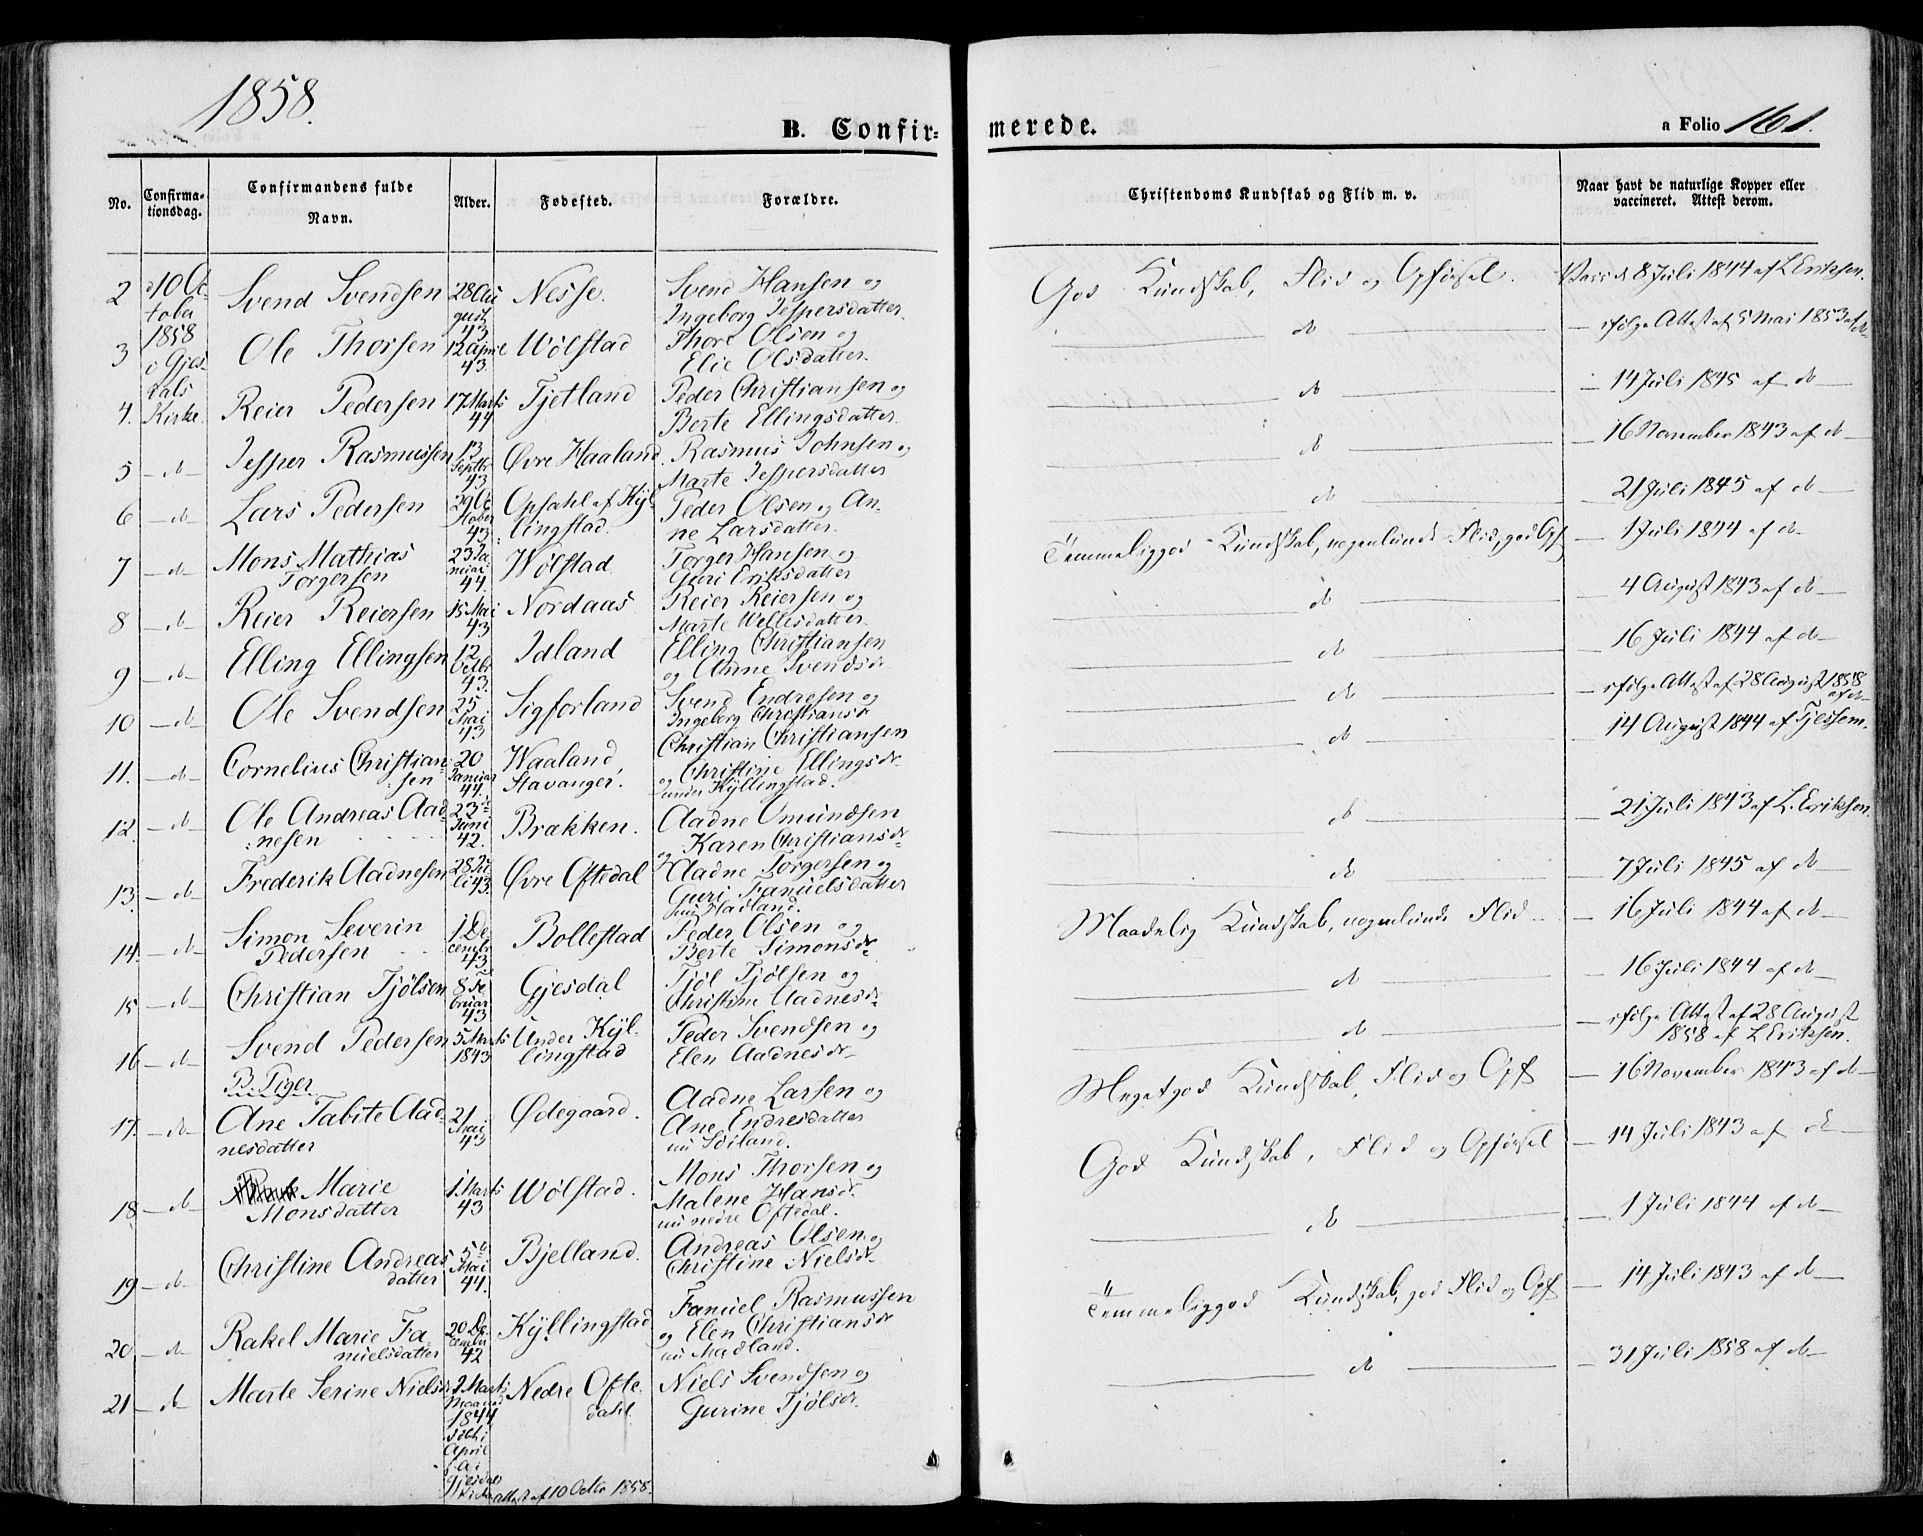 1858.
B. Confirmerede.
a Folio 161.
No. Confirmationsdag. Confirmandens fulde Navn. Alder. Fødested. Forældre. Christendoms Kundskab og Flid m. v. Naar havt de naturlige Kopper eller vaccineret. Attest derom.
2 d 10 October 1858 i Gjesdals Kirke. Svend Svendsen 28 August 43 Nesse. Svend Hansen og Ingeborg Jespersdatter. God Kundskab, Flid og Opførsel. Vacc d 8 Juli 1844 af L Eriksen.
3 Ole Thorsen 12 April 43. Wølstad Thore Olsen og Elie Olsdatter. do — ifølge Attest af 5 Mai 1853 af do
4. Reier Pedersen 17 Marts 44 Fjetland Peder Christiansen og Berte Ellingsdatter. do — 14 Juli 1845 af do
5 — do — Jesper Rasmussen 13 Septbr 43 Øvre Haaland. Rasmus Johnsen og Marte Jespersdatter do — 16 November 1843 af do
6 — do — Lars Pedersen 29 October 43 Opsahl af Kyllingstad. Peder Olsen og Anne Larsdatter. do — 21 Juli 1845 af do
7 — do — Mons Mathias Torgersen 23 Januar 44. Wølstad Torger Hansen og Guri Eriksdatter Temmelig god Kundskab, nogenlunde Flid, god Opf — 1 Juli 1844 af do
8 — do — Reier Reiersen 15 Mai 43 Nordaas Reier Reiersen og Marte Willesdatter. do — 4 August 1843 af do
9 — do — Elling Ellingsen 12 Octbr 43. Idland Elling Christiansen og Anne Svendsdr do — 16 Juli 1844 af do
10 — do — Ole Svendsen 25 Mai 43 Sigforland Svend Endresen og Ingeborg Christiansdr do — ifølge Attest af 28 August 1858 af do
11. — do — Cornelius Christiansen 20 Januar 44. Waaland, Stavanger. Christian Christiansen og Christine Ellingsdr under Kyllingstad. do 14 August 1844 af Tjessem.
12 — do — Ole Andreas Aadnesen 23de Juni 42. Brækken. Aadne Omundsen og Karen Christiansdr do — 21 Juli 1843 af L. Eriksen.
13. — do — Frederik Aadnesen 28 Juli 43. Øvre Oftedal Aadne Torgersen og Guri Fanuelsdatter nu Madland. do — 7 Juli 1845 af do
14. — do — Simon Severin Pedersen 1 December 43 Bollestad Peder Olsen og Berte Simonsdr Maadelig Kundskab, nogenlunde Flid — 16 Juli 1844 af do
15 — do — Christian Tjølsen 8 Februar 43 Gjesdal Tjøl Tjølsen og Christine Aadnesdr do — 16 Juli 1844 af do
16 — do — Svend Pedersen 5 Marts 1843 Under Kyllingstad Peder Svendsen og Elen Aadnesdr do — ifølge Attest af 28 August 1858 af L Eriksen.
B. Piger
17. — do — Ane Tabite Aadnesdatter 21 Mai 43 Ødegaard. Aadne Larsen og Ane Endresdatter nu Søiland. Meget god Kundskab, Flid og Opf — 16 November 1843 af do
18 — do — Marie Monsdatter 1 Marts 43 Wølstad. Mons Thorsen og Malene Hansdr nu nedre Oftedal. God Kundskab, Flid og Opførsel — 14 Juli 1843 af do
19 — do — Christine Andreasdatter 5te Mai 44. Bjelland. Andreas Olsen og Christine Nielsdr do — 1 Juli 1844 af do
20 — do — Rakel Marie Fanuelsdatter 20 December 42 Kyllingstad Fanuel Rasmussen og Elen Christiansdr nu Madland. Temmelig god Kundskab, god Flid og Opf — 14 Juli 1843 af do
21 — do — Marte Serine Nielsdr 2 Marts 1844 Nedre Oftedahl. Niels Svendsen og Gurine Tjølsdr. do — 31 Juli 1858 af do
April
Gjesdals Kirke attest af 10 Octbr 1858.